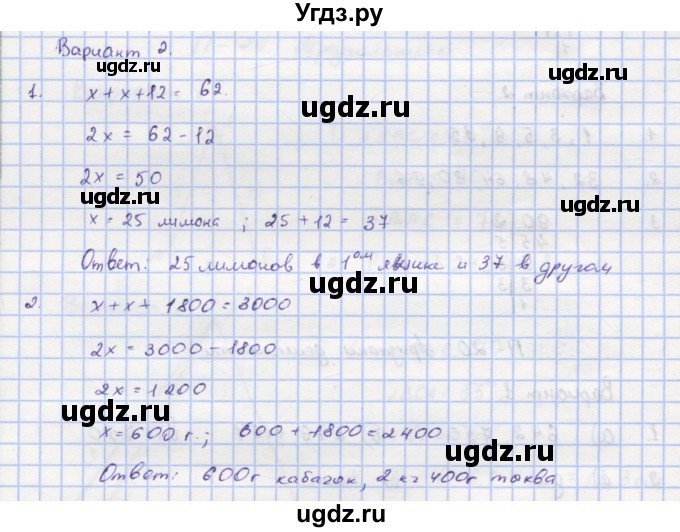 Угдз.ру
Вариант 2.
1. x + x + 12 = 62.
2x = 62 - 12
2x = 50
x = 25 лимона ; 25 + 12 = 37
Ответ: 25 лимонов в 1ом ящике и 37 в другом
2. x + x + 1800 = 3000
2x = 3000 - 1800
2x = 1200
x = 600 г. ; 600 + 1800 = 2400
Ответ: 600г кабачок, 2 кг 400г тыква
ugdz.ru ugdz.ru
ugdz.ru ugdz.ru
ugdz.ru ugdz.ru
ugdz.ru
ugdz.ru
ugdz.ru ugdz.ru
ugdz.ru